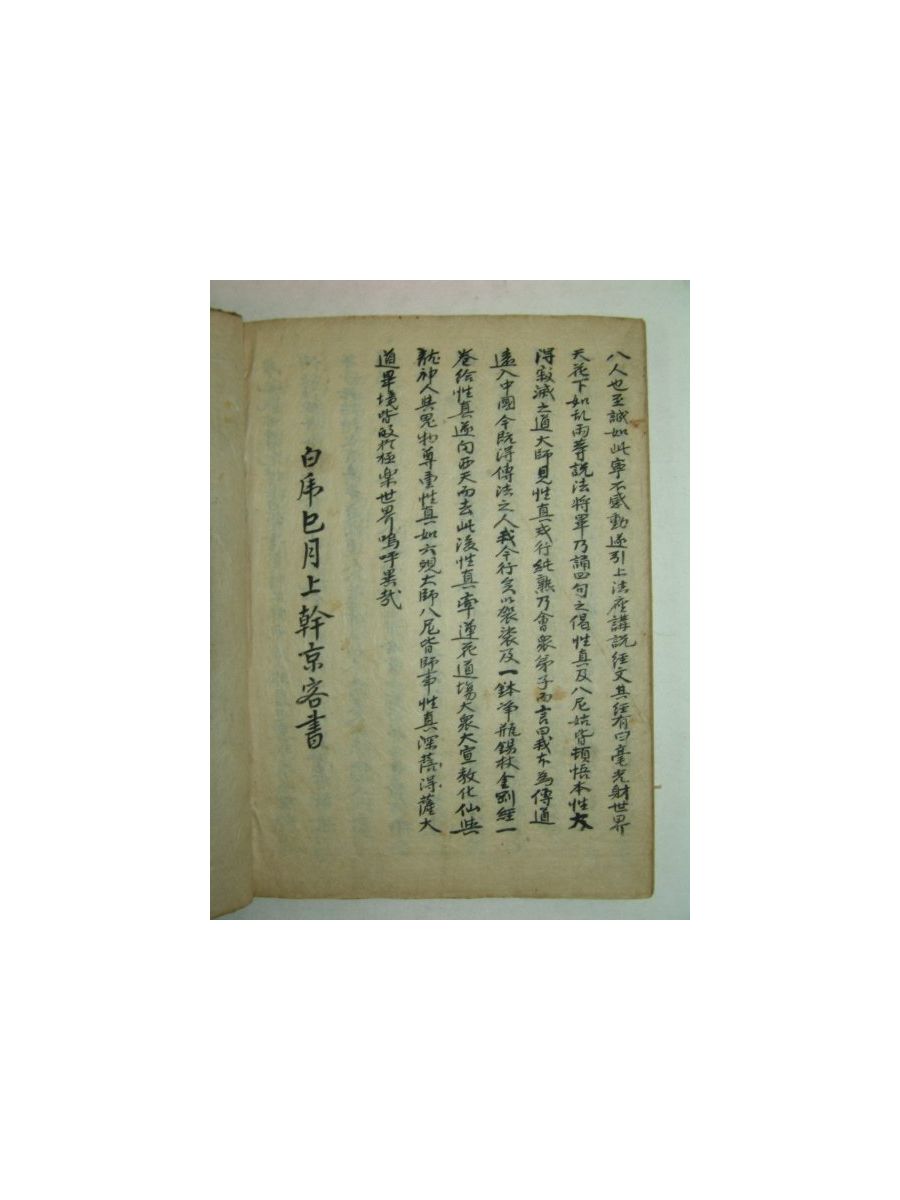 八人也至誠如此寧不感動遂引上法座講說経文其経有曰毫光射世界
天花下如乱雨等說法将畢乃誦四句之偈性真及八尼姑皆頓悟本性大
得寂滅之道大師見性真戒行純熟乃會衆弟子而言曰我本為傳道
遠入中國今既得傳法之人我今行矣以袈裟及一鉢净瓶錫杖金剛経一
巻給性真遂向西天而去此後性真率蓮花道場大衆大宣教化仙與
龍神人與鬼物尊重性真如六觀大師八尼皆師事性真深菩得薩大
道畢境皆故於極楽世界嗚呼異哉
白虎巳月上幹京客書